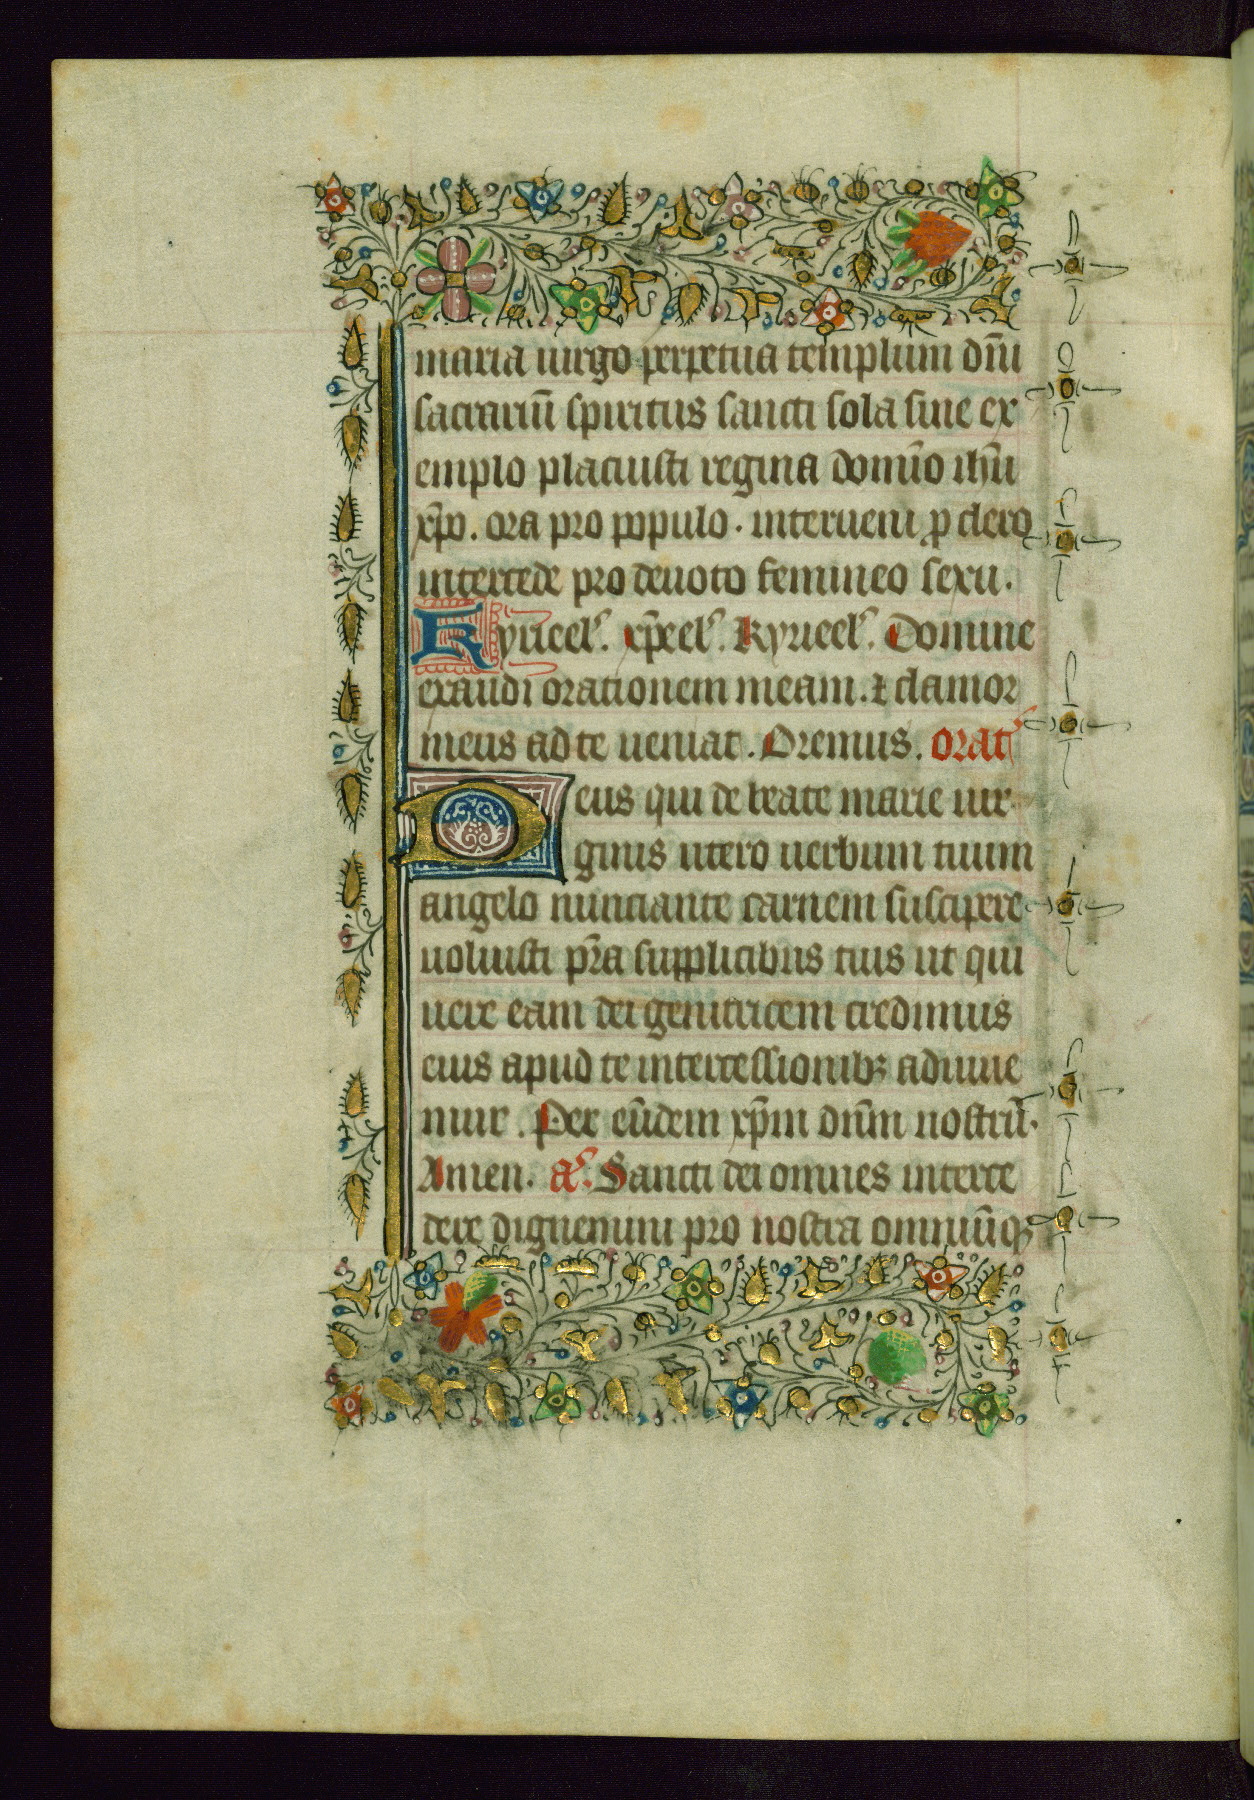 maria uirgo perpetua templum dn̄i
sacrariū spiritus sancti sola sine ex
emplo placuisti regina domīo ihū
xp̄o. ora pro populo. interueni ꝓ clero
intercede pro deuoto femineo sexu.
Kyrieel'. xp̄eel'. Kyrieel'. Domine
exaudi orationem meam. ⁊ clamor
meus ad te ueniat. Oremus. orat'
Deus qui de beate marie uir
ginis utero uerbum tuum
angelo nunciante carnem suscipere
uoluisti p̄ra supplicibus tuis ut qui
uere eam dei genitricem credimus
eius apud te intercessionibꝫ adiuue
mur. Per eūdem xp̄m dn̄m nostrū.
Amen. a'. Sancti dei omnes interce
dere dignemini pro nostra omniūqꝫ